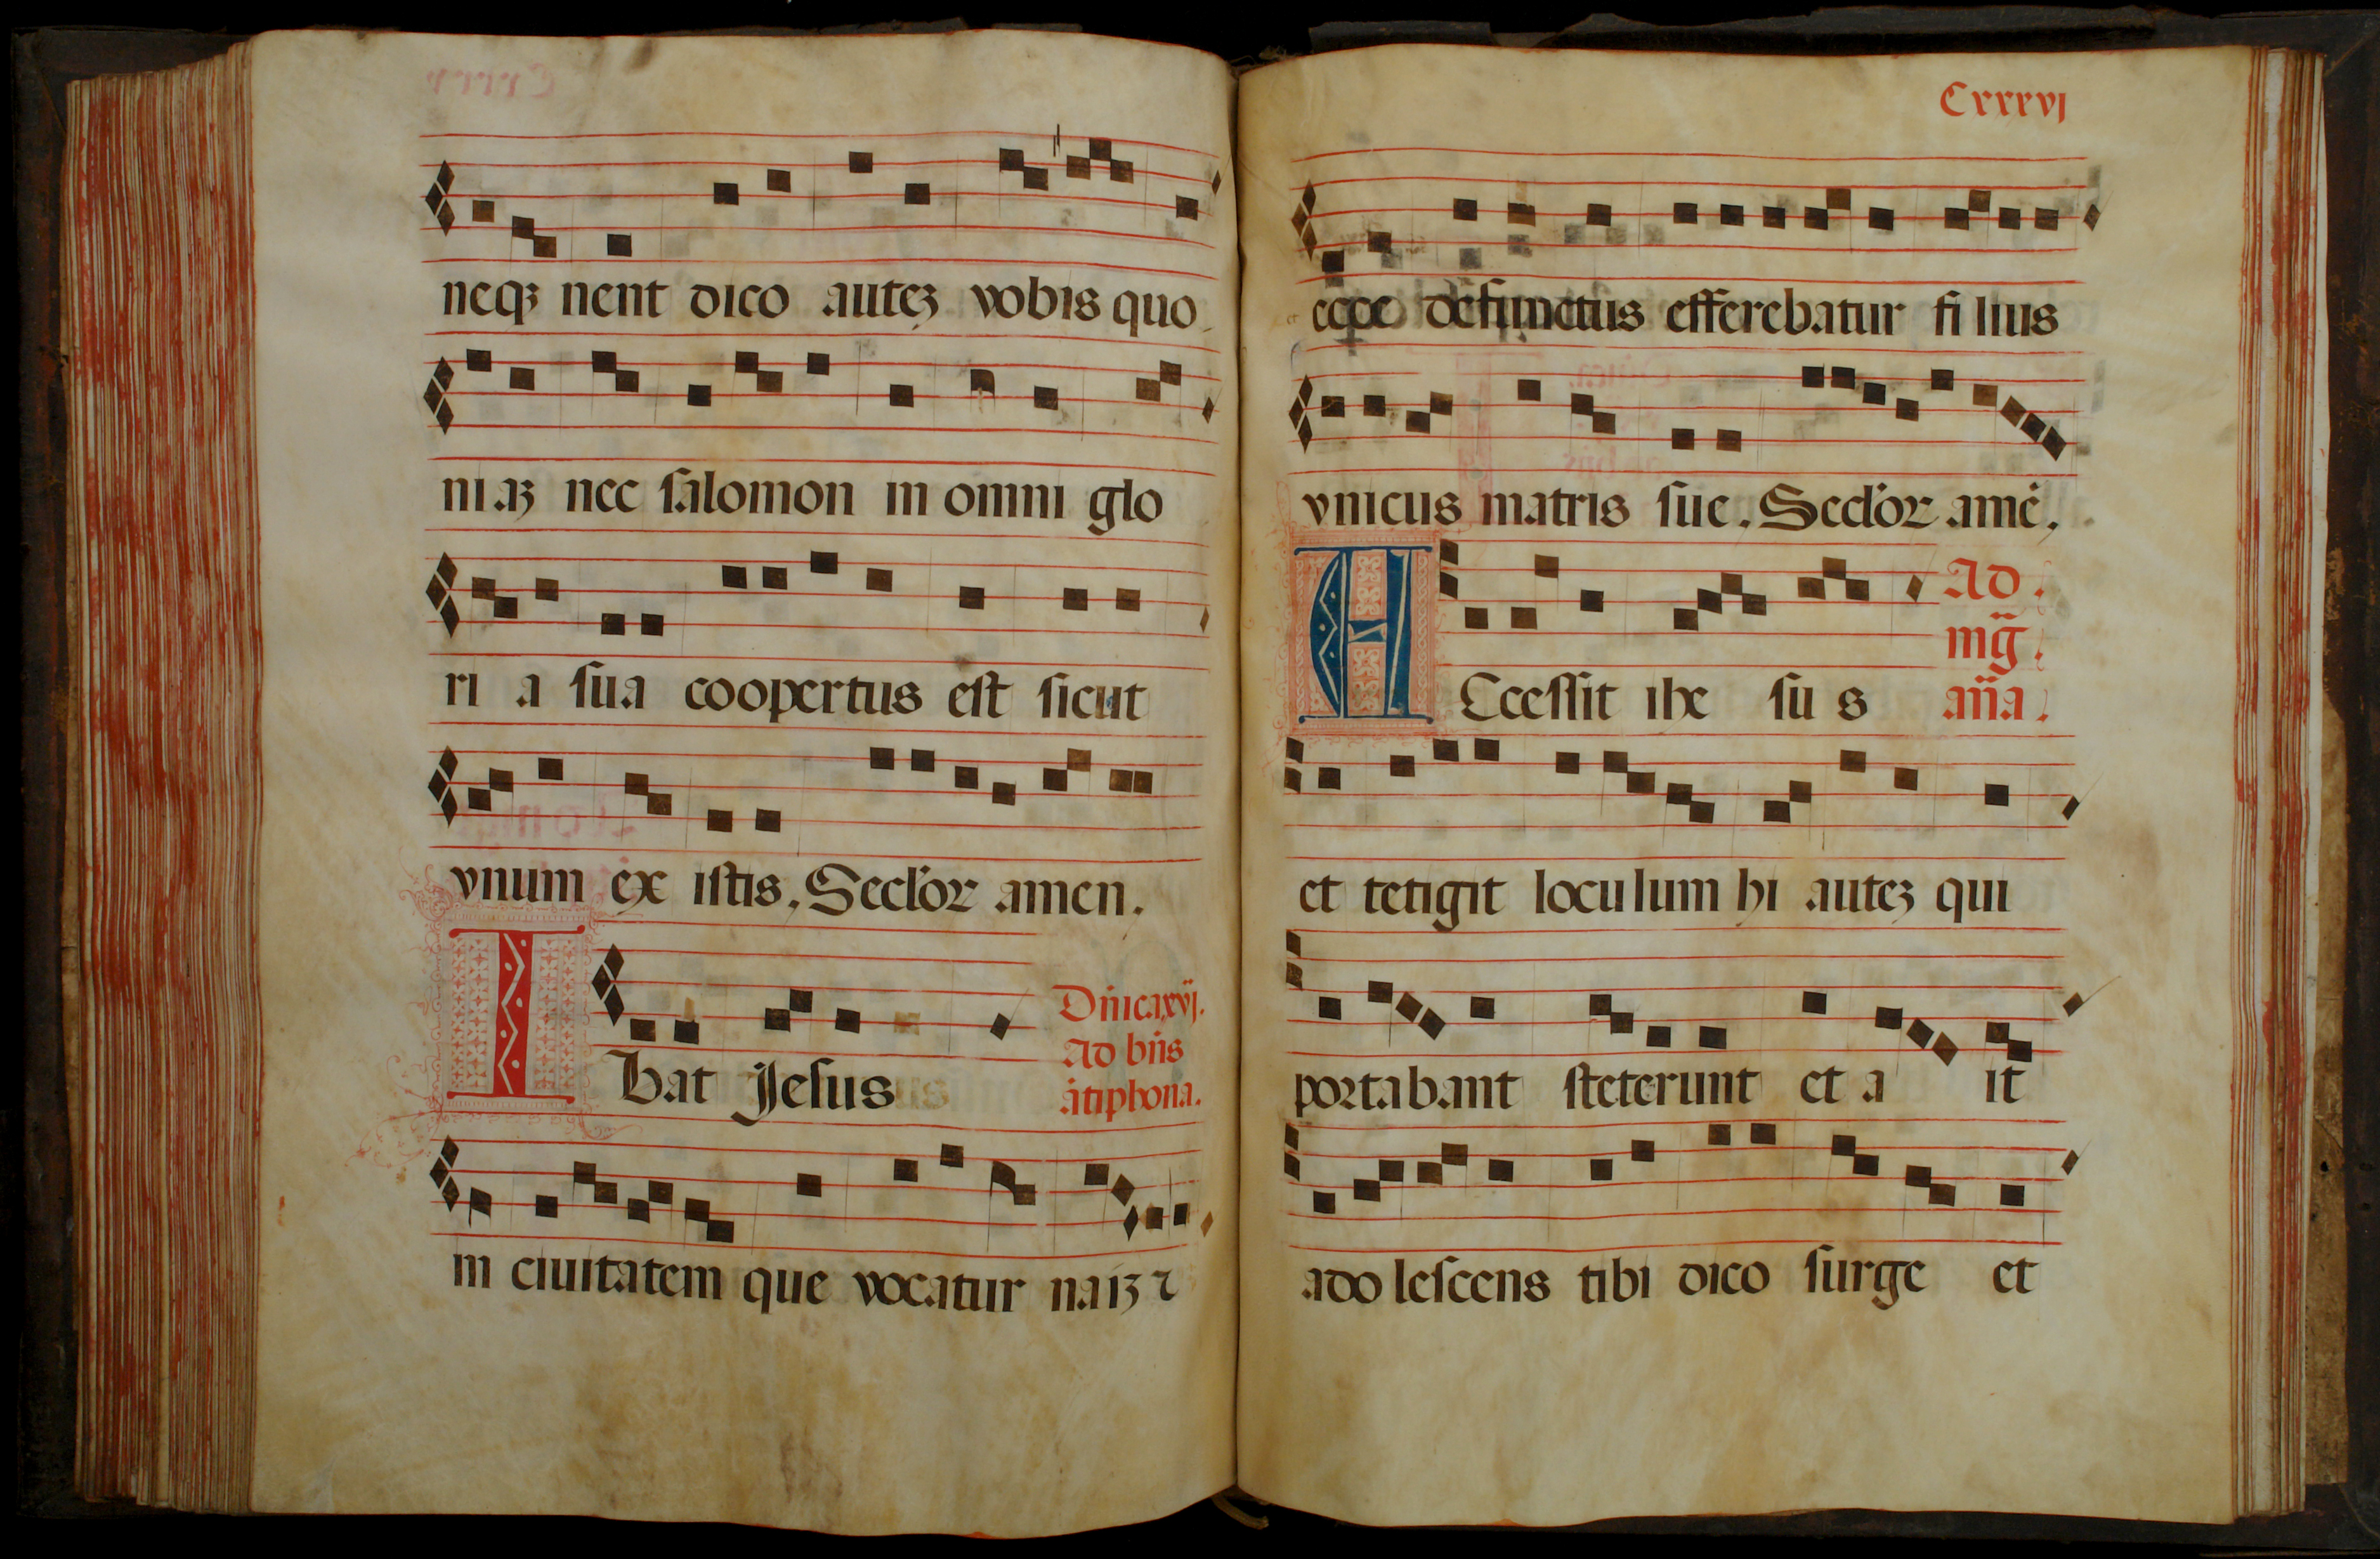 neqꝫ nent dico auteꝫ vobis quo
niaꝫ nec ſalomon in omni glo
ri a ſua coopertus eſt ſicut
vnum ex iſtis. Secl'oꝛ amen.
Dn̄ica xvj.
Ad bn̄s
ātiphona.
I bat Jeſus
in ciuitatem que vocatur naiꝫ ⁊
Cxxxvj
ecce defunctus efferebatur fi lius
vnicus matris ſue. Secl'oꝛ amē.
Ad
mḡ.
an̄a.
A Cceſſit ihe ſu s
et tetigit loculum hi auteꝫ qui
poꝛtabant ſteterunt et a it
ado leſcens tibi dico ſurge et